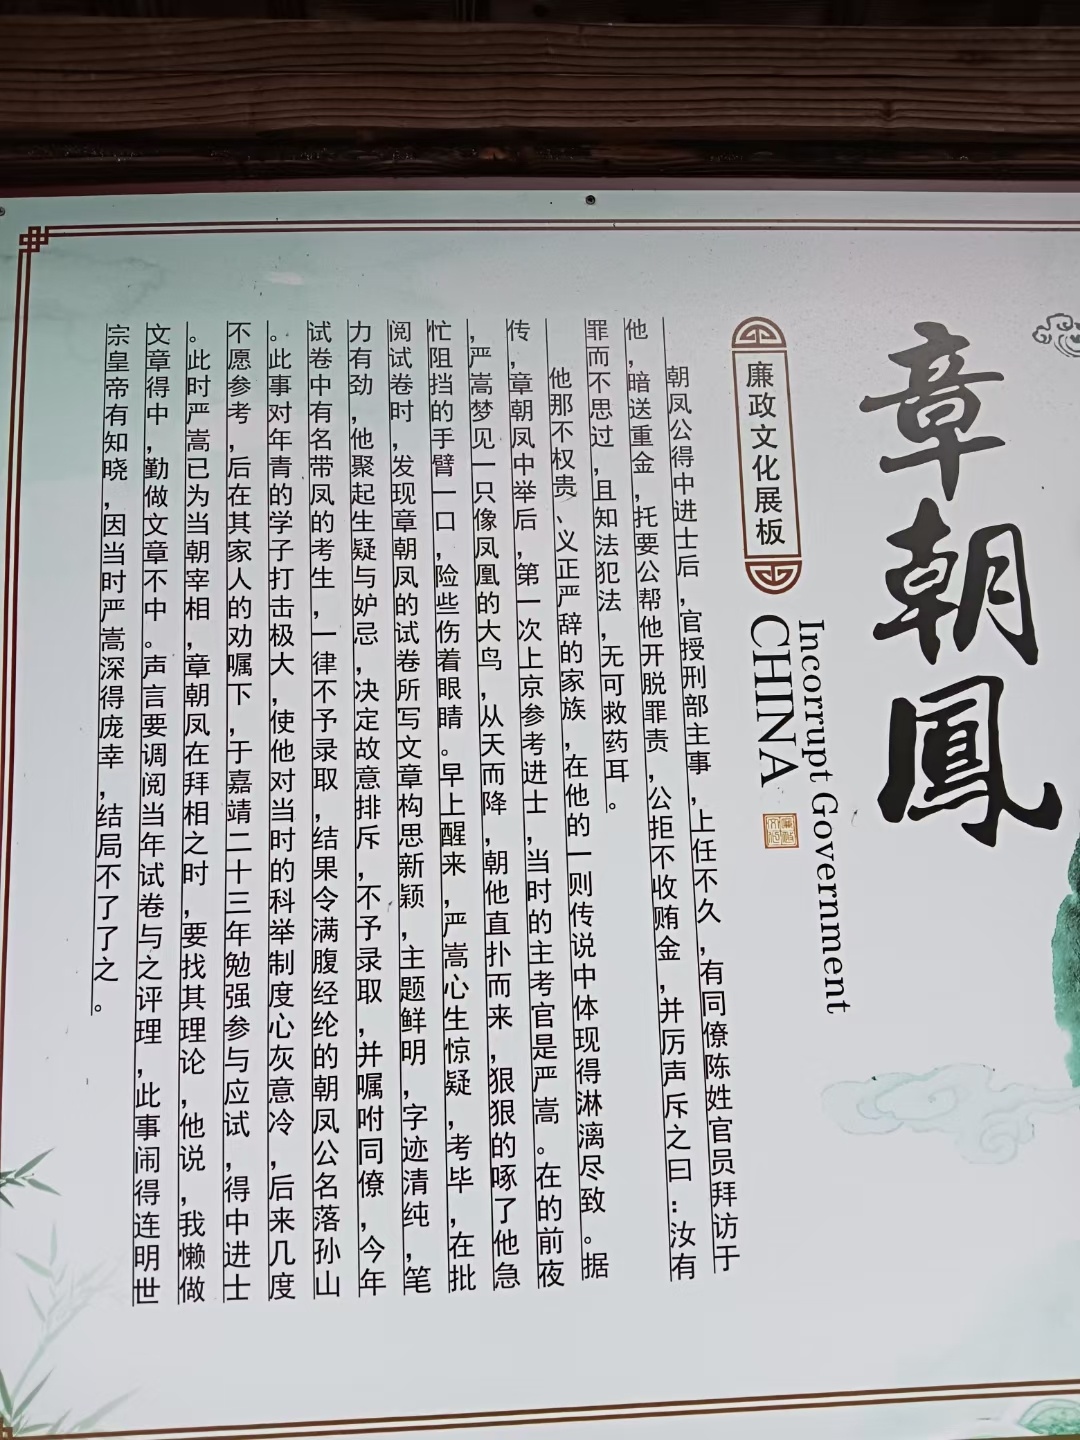 章朝鳳
Incorrupt Government
CHINA
廉政文化展板
朝凤公得中进士后，官授刑部主事，上任不久，有同僚陈姓官员拜访于
他，暗送重金，托要公帮他开脱罪责，公拒不收贿金，并厉声斥之曰：汝有
罪而不思过，且知法犯法，无可救药耳。
他那不权贵、义正严辞的家族，在他的一则传说中体现得淋漓尽致。据
传，章朝凤中举后，第一次上京参考进士，当时的主考官是严嵩。在的前夜
，严嵩梦见一只像凤凰的大鸟，从天而降，朝他直扑而来，狠狠的啄了他急
忙阻挡的手臂一口，险些伤着眼睛。早上醒来，严嵩心生惊疑，考毕，在批
阅试卷时，发现章朝凤的试卷所写文章构思新颖，主题鲜明，字迹清纯，笔
力有劲，他聚起生疑与妒忌，决定故意排斥，不予录取，并嘱咐同僚，今年
试卷中有名带凤的考生，一律不予录取，结果令满腹经纶的朝凤公名落孙山
。此事对年青的学子打击极大，使他对当时的科举制度心灰意冷，后来几度
不愿参考，后在其家人的劝嘱下，于嘉靖二十三年勉强参与应试，得中进士
。此时严嵩已为当朝宰相，章朝凤在拜相之时，要找其理论，他说，我懒做
文章得中，勤做文章不中。声言要调阅当年试卷与之评理，此事闹得连明世
宗皇帝有知晓，因当时严嵩深得庞幸，结局不了了之。